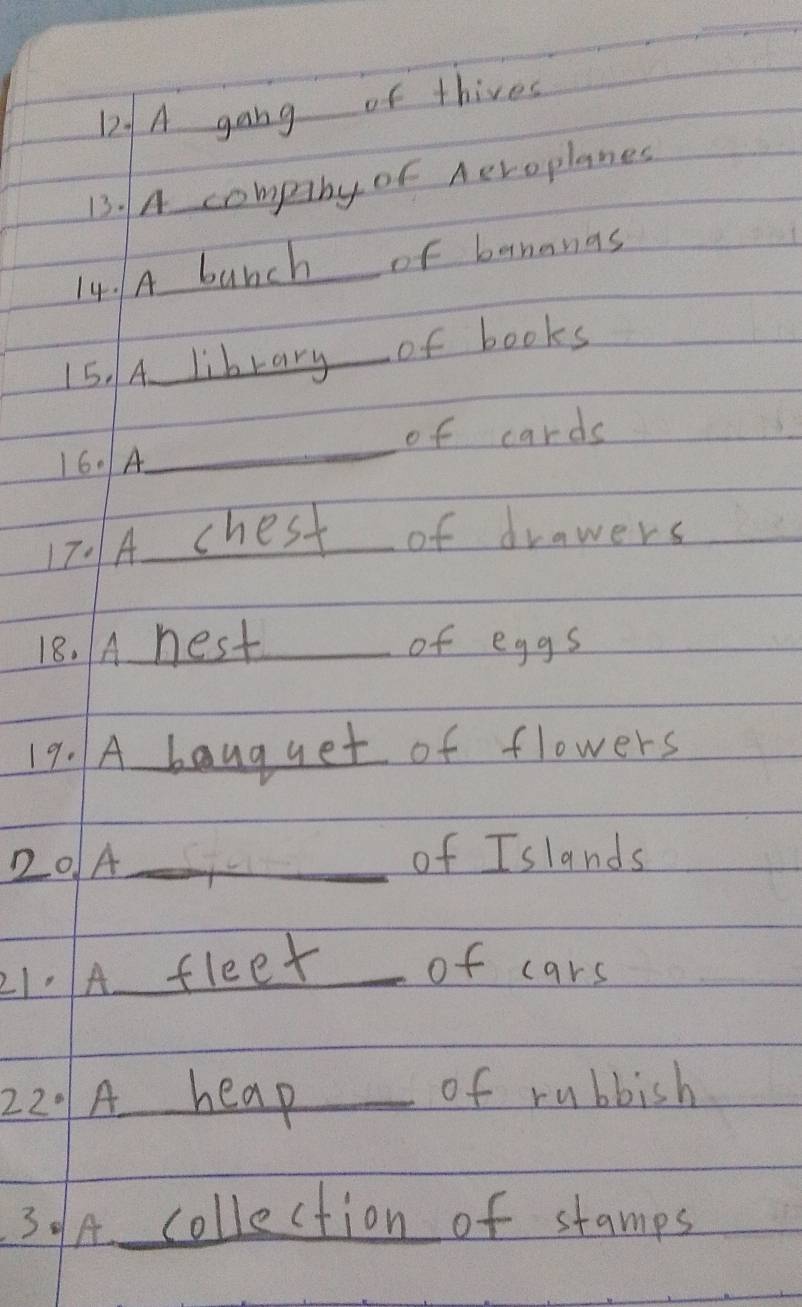 12. A gang of thives
13. A company of Aeroplanes
14. A bunch of bananas
15. A library of books
16. A ______ of cards
17. A chest of drawers
18. A nest of eggs
19. A bouquet of flowers
20. A ______ of Islands
21. A fleet of cars
22. A heap of rubbish
3. A collection of stamps